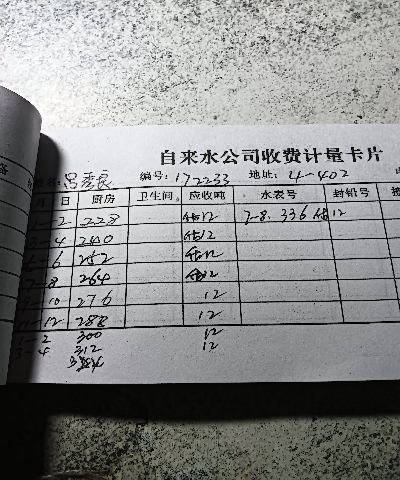 自来水公司收费计量卡片
编号: 172233 地址: 4-402
月 日 厨房 卫生间 应收吨 水表号 封铅号
1-2 228 估12 7-8. 336 估12
3-4 240 估12
5-6 252 估12
7-8 264 估12
9-10 276 12
11-12 288 12
1-2 300 12
3-4 312 12